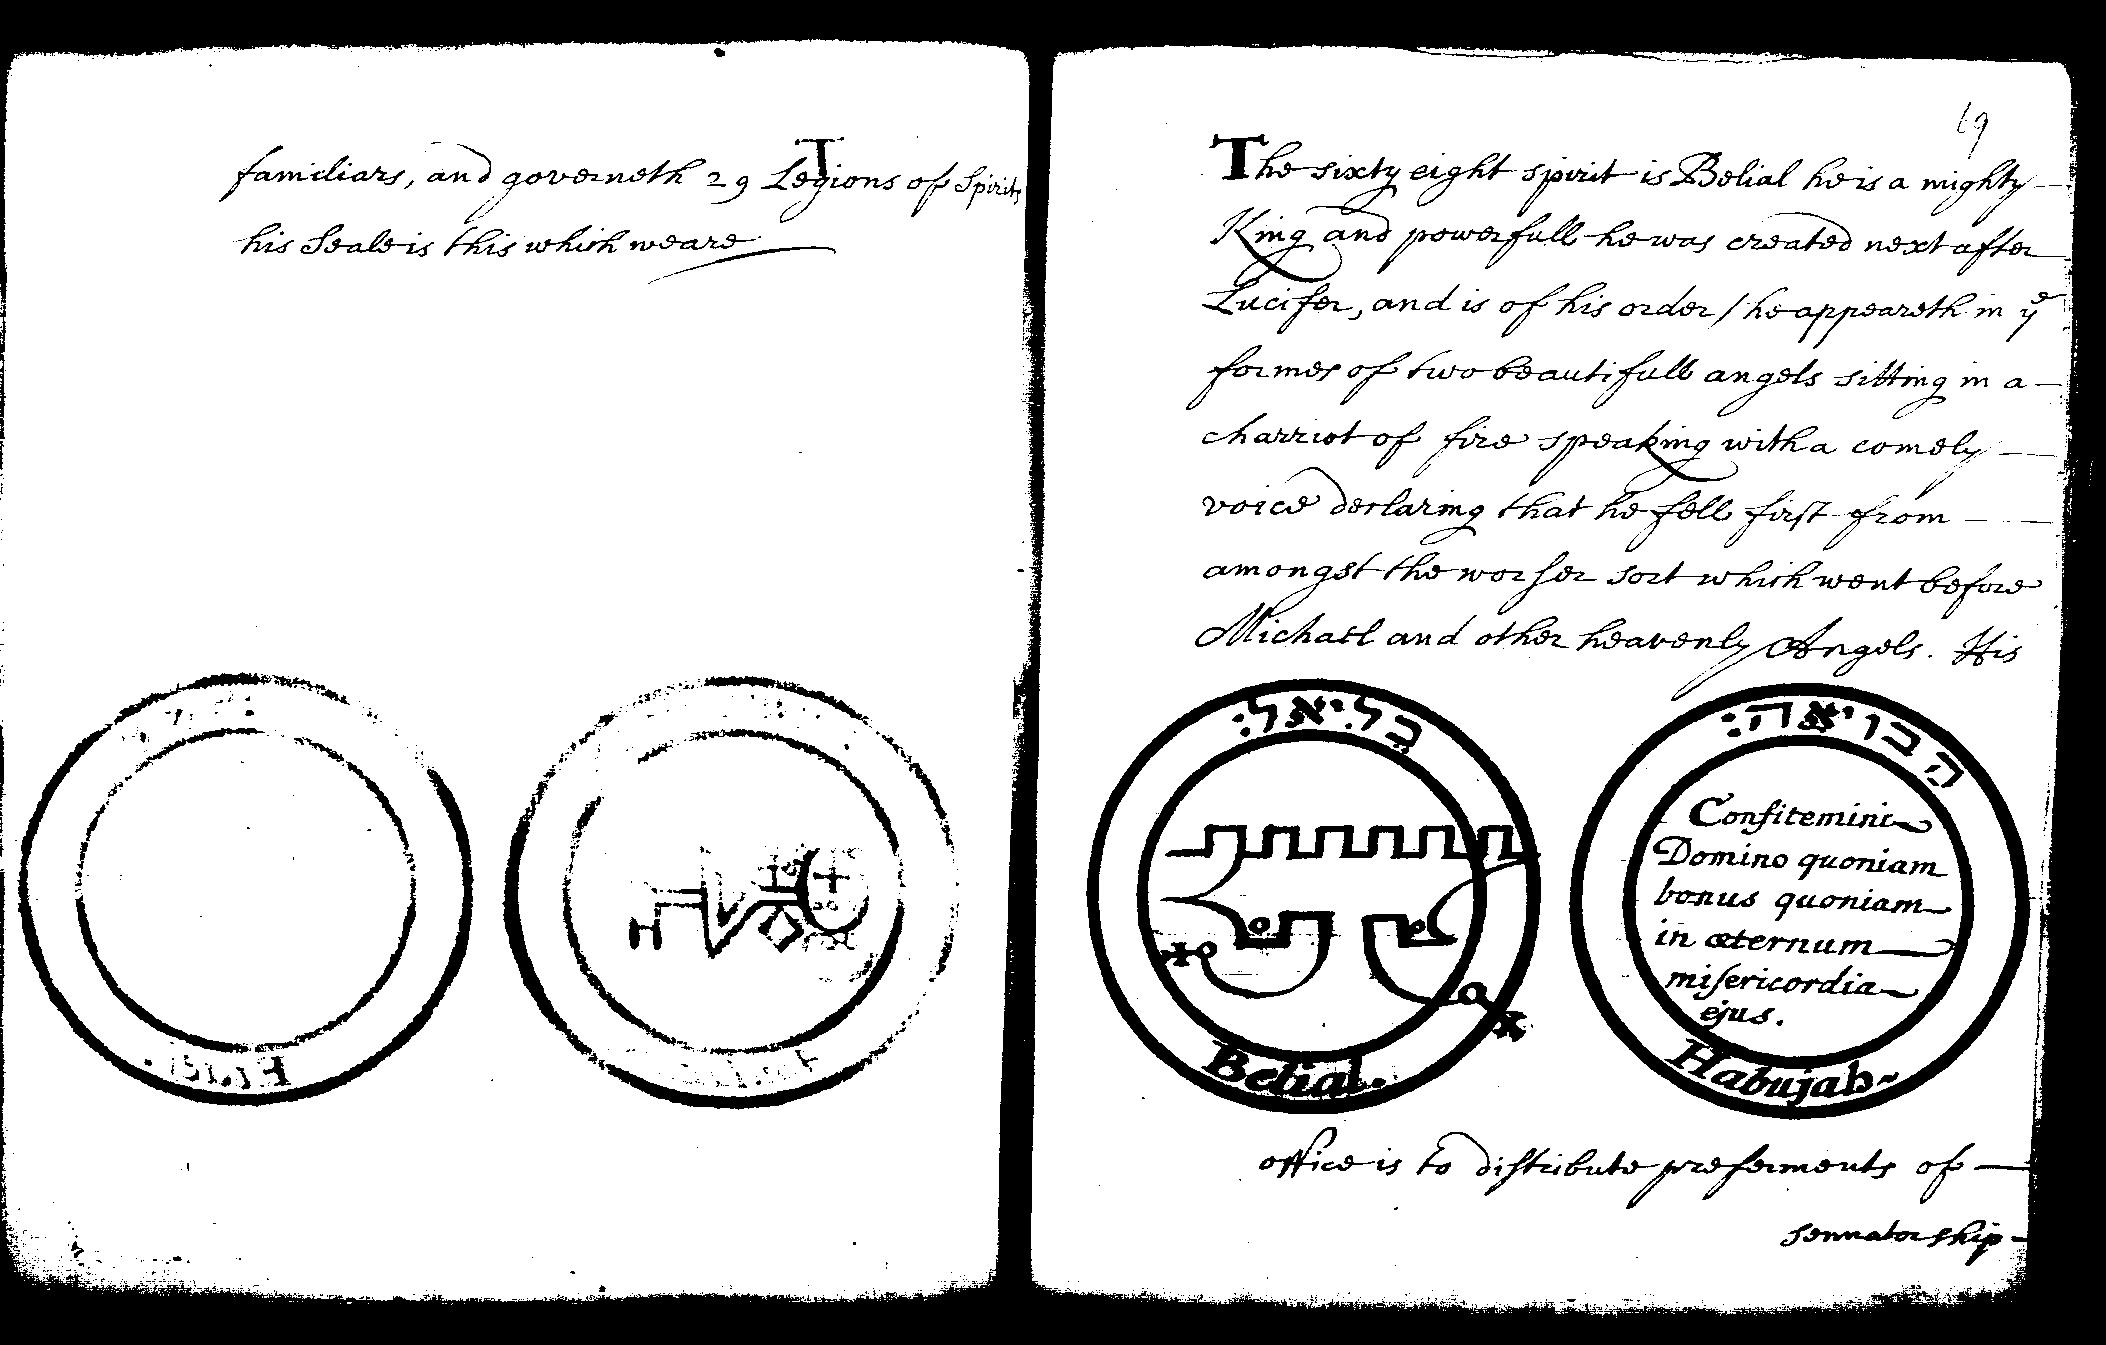 familiars, and governeth 29 Legions of Spirits
his Seale is this which weare
69
The sixty eight spirit is Belial he is a mighty
King and powerfull he was created next after
Lucifer, and is of his order / he appeareth in yᵉ
formes of two beautifull angels sitting in a
charriot of fire speaking with a comely
voice declaring that he fell first from
amongst the worser sort which went before
Michael and other heavenly Angels. His
בליאל:
Belial.
הבויאה:
Confitemini
Domino quoniam
bonus quoniam
in æternum
misericordia
ejus.
Habujah
office is to distribute preferments of
sennatorship